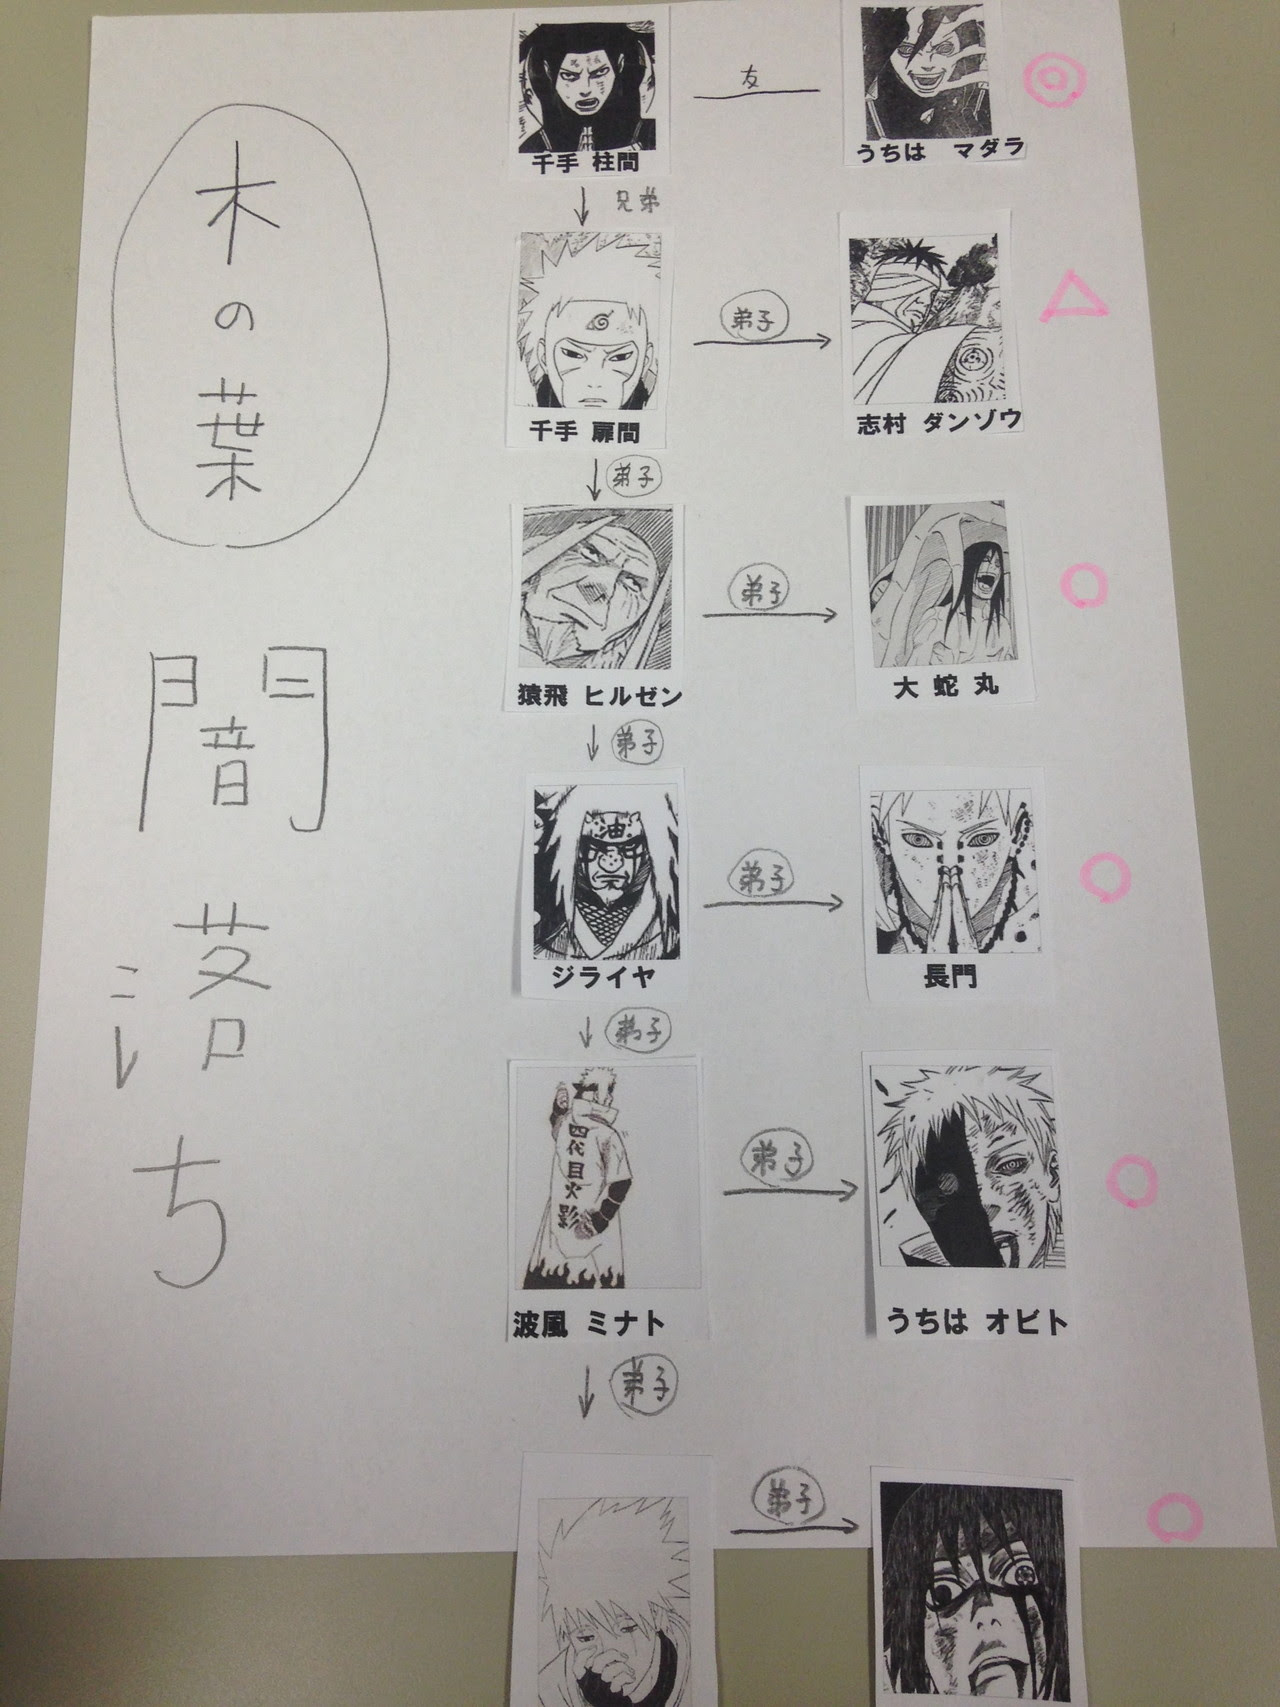 木の葉
闇落ち
友
千手 柱間
うちは マダラ
兄弟
弟子
千手 扉間
志村 ダンゾウ
弟子
弟子
猿飛 ヒルゼン
大蛇丸
弟子
油
弟子
ジライヤ
長門
弟子
四代目火影
弟子
波風 ミナト
うちは オビト
弟子
弟子